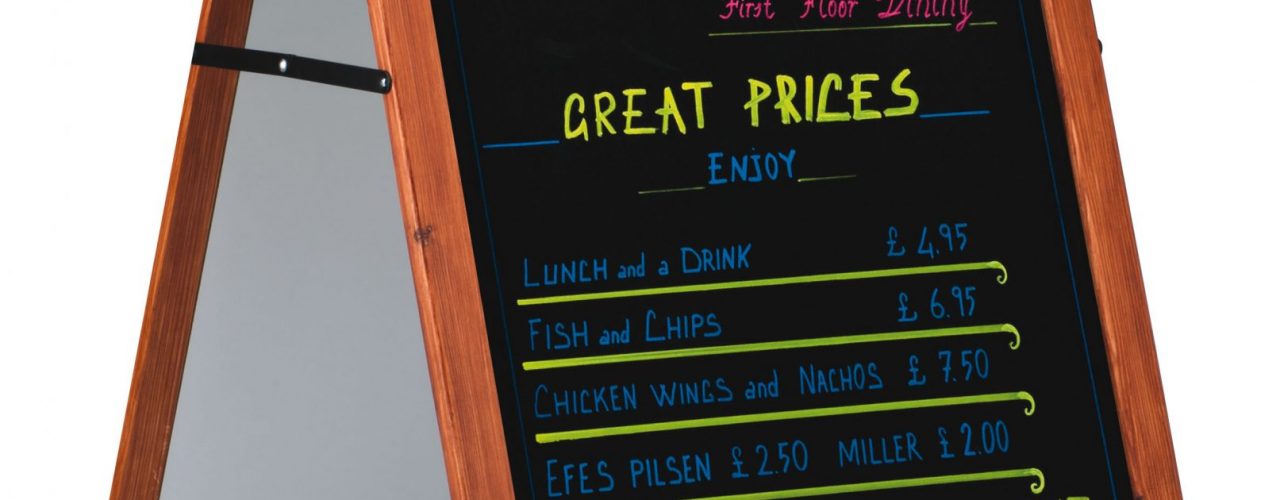 First Floor Dining
GREAT PRICES
ENJOY
LUNCH and a DRINK £ 4.95
FISH and CHIPS £ 6.95
CHICKEN WINGS and NACHOS £ 7.50
EFES PILSEN £ 2.50 MILLER £ 2.00